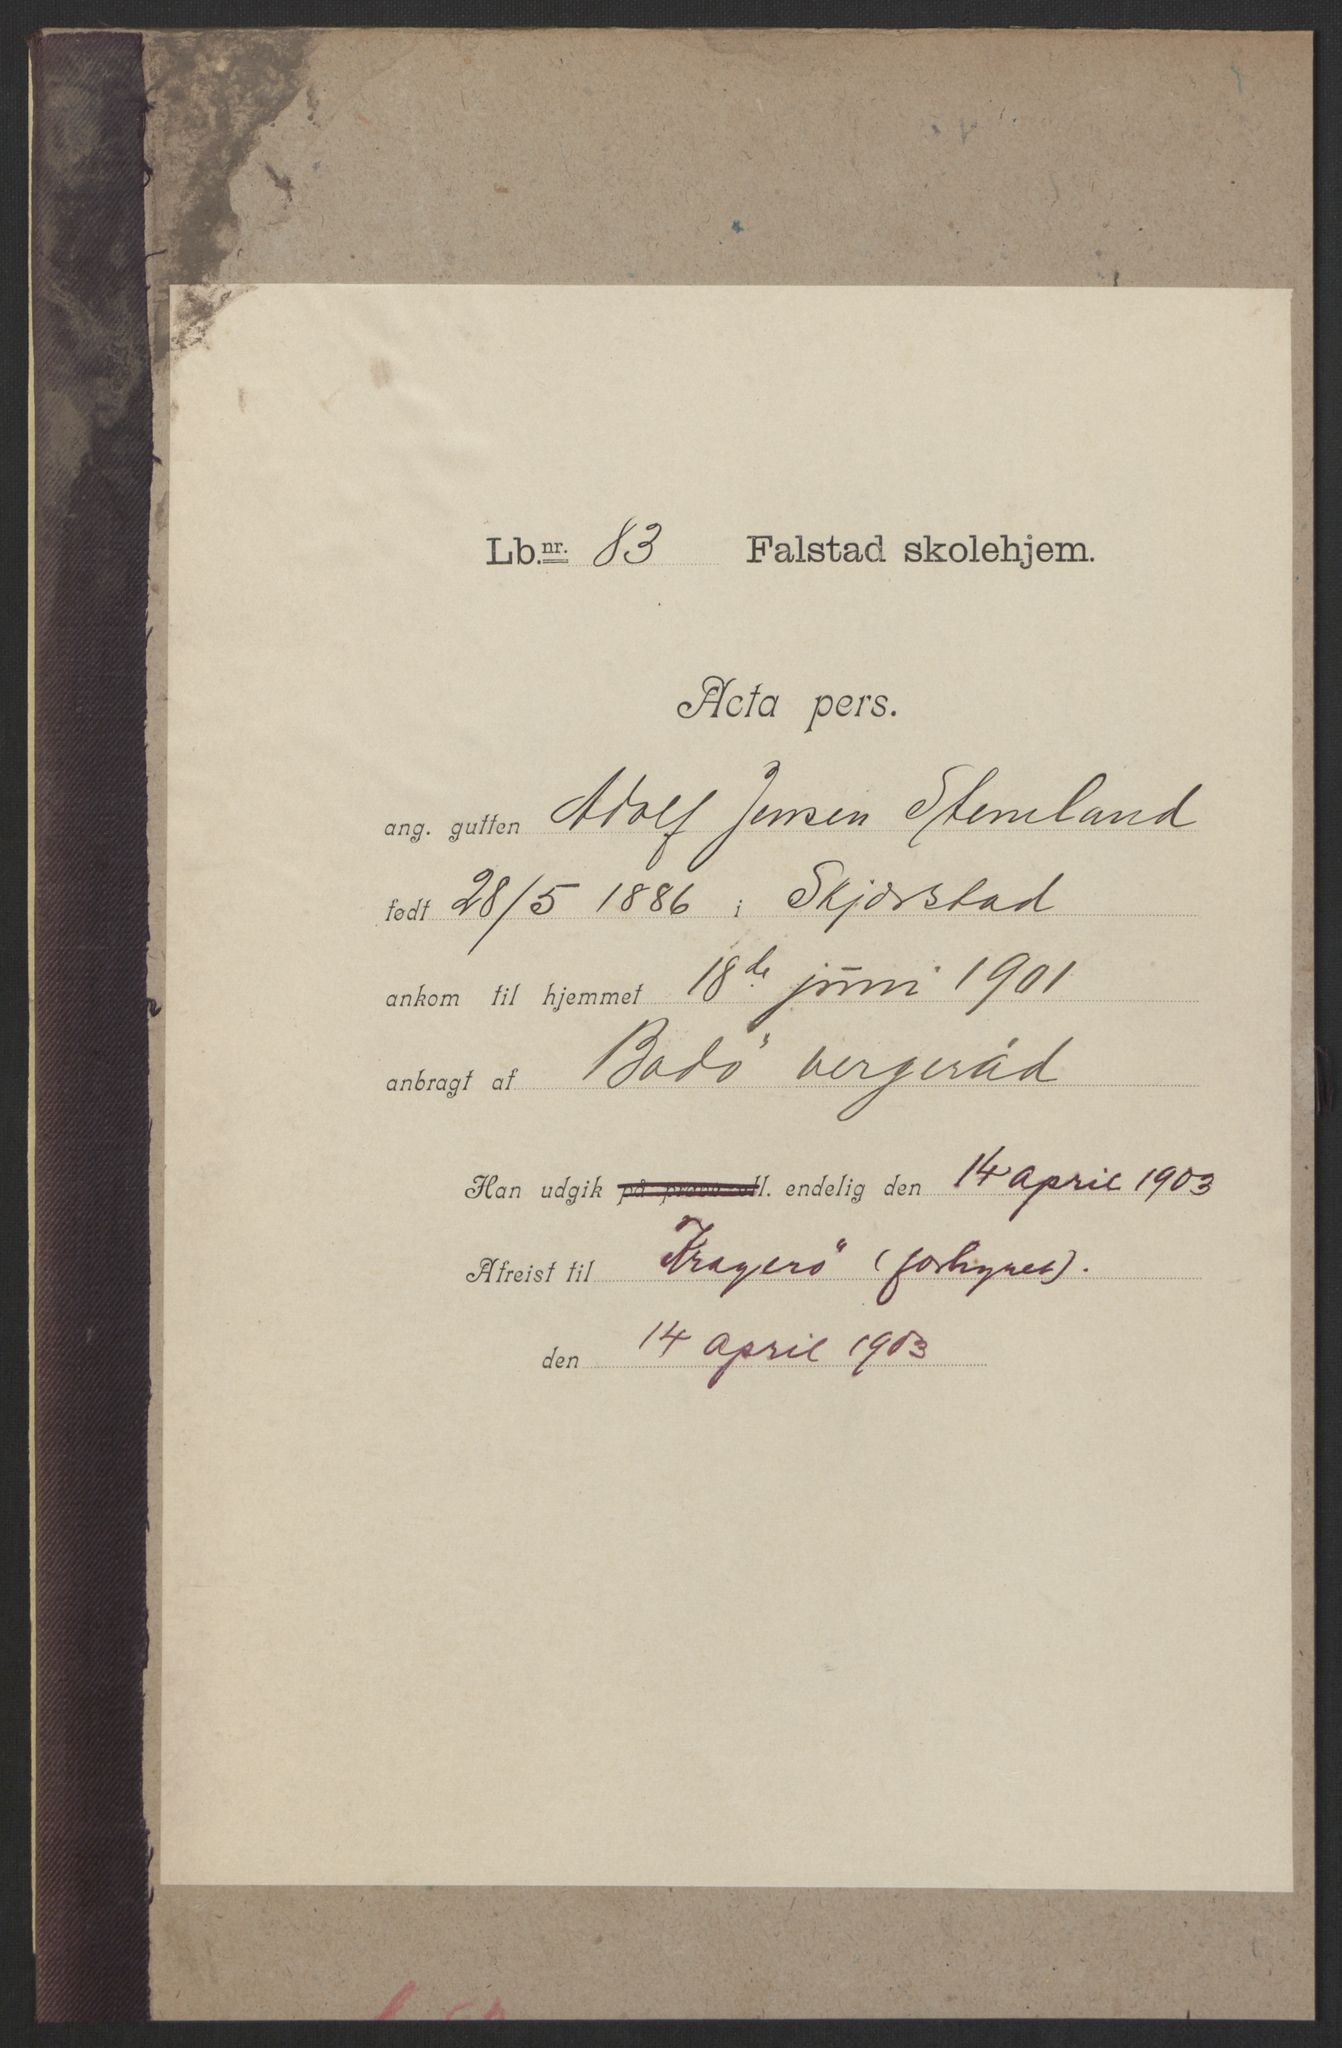 Lb.nr. 83 Falstad skolehjem.
Acta pers.
ang. gutten Adolf Jensen Stemland
født 28/5 1886 i Skjerstad
ankom til hjemmet 18de juni 1901
anbragt af Bodö vergeråd
Han udgik på prøve ell. endelig den 14 april 1903
Afreist til Kragerö (forhyret).
den 14 april 1903